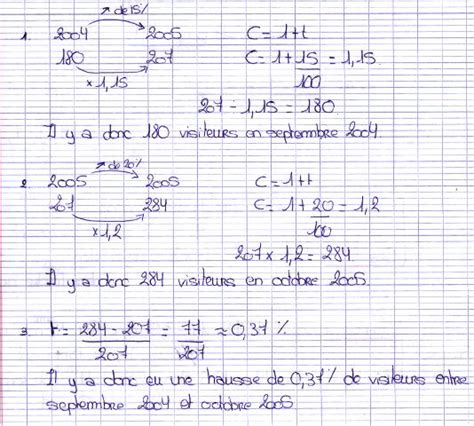 ↗ de 15%
1. 2004 2005 C = 1+t
180 207 C = 1 + 15/100 = 1,15
× 1,15
207 - 1,15 = 180
Il y a donc 180 visiteurs en septembre 2004.
↗ de 20%
2. 2005 2005 C = 1+t
207 284 C = 1 + 20/100 = 1,2
× 1,2
207 × 1,2 = 284
Il y a donc 284 visiteurs en octobre 2005.
3. t = 284 - 207/207 = 77/207 ≈ 0,37 %
Il y a donc eu une hausse de 0,37% de visiteurs entre
septembre 2004 et octobre 2005